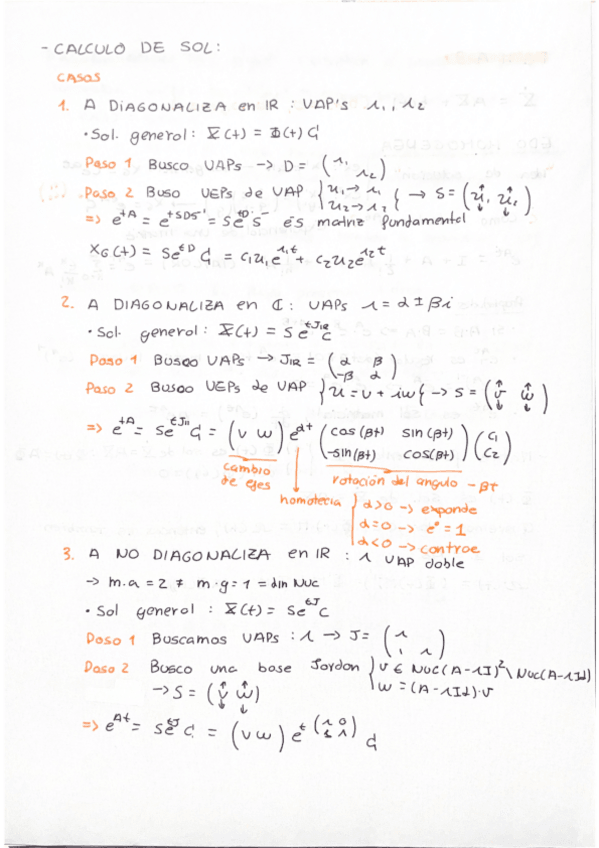 - CALCULO DE SOL:
CASOS
1. A DIAGONALIZA en IR : VAP's λ₁, λ₂
• Sol. general: X(t) = Φ(t) C
Paso 1 Busco VAPs → D = (λ₁ λ₂)
Paso 2 Buso VEPs de VAP {u₁ → λ₁ u₂ → λ₂} → S = (u₁ u₂)
=> e^{tA} = e^{tSDS⁻¹} = S e^{tD} S⁻ es matriz fundamental
X_G(t) = S e^{tD} C = c₁u₁e^{λ₁t} + c₂u₂e^{λ₂t}
2. A DIAGONALIZA en C : VAPs λ = α ± βi
• Sol. general: X(t) = S e^{tJ_IR} C
Paso 1 Busco VAPs → J_IR = (α β -β α)
Paso 2 Busco VEPs de VAP {u = v + iw} → S = (v w)
=> e^{tA} = S e^{tJ_IR} C = (v w) e^{αt} (cos(βt) sin(βt) -sin(βt) cos(βt)) (c₁ c₂)
cambio de ejes
rotación del angulo - βt
homotecia
α>0 → exponde
α=0 → e⁰ = 1
α<0 → controe
3. A NO DIAGONALIZA en IR : λ VAP doble
→ m.a = 2 ≠ m.g = 1 = dim Nuc
• Sol general : X(t) = S e^{tJ} C
Paso 1 Buscamos VAPs : λ → J = (λ 1 λ)
Paso 2 Busco una base Jordon {v ∈ Nuc(A-λI)² \ Nuc(A-λId)
w = (A-λId)·v
→ S = (v w)
=> e^{At} = S e^{tJ} C = (v w) e^{t (λ 0 1 λ)} C